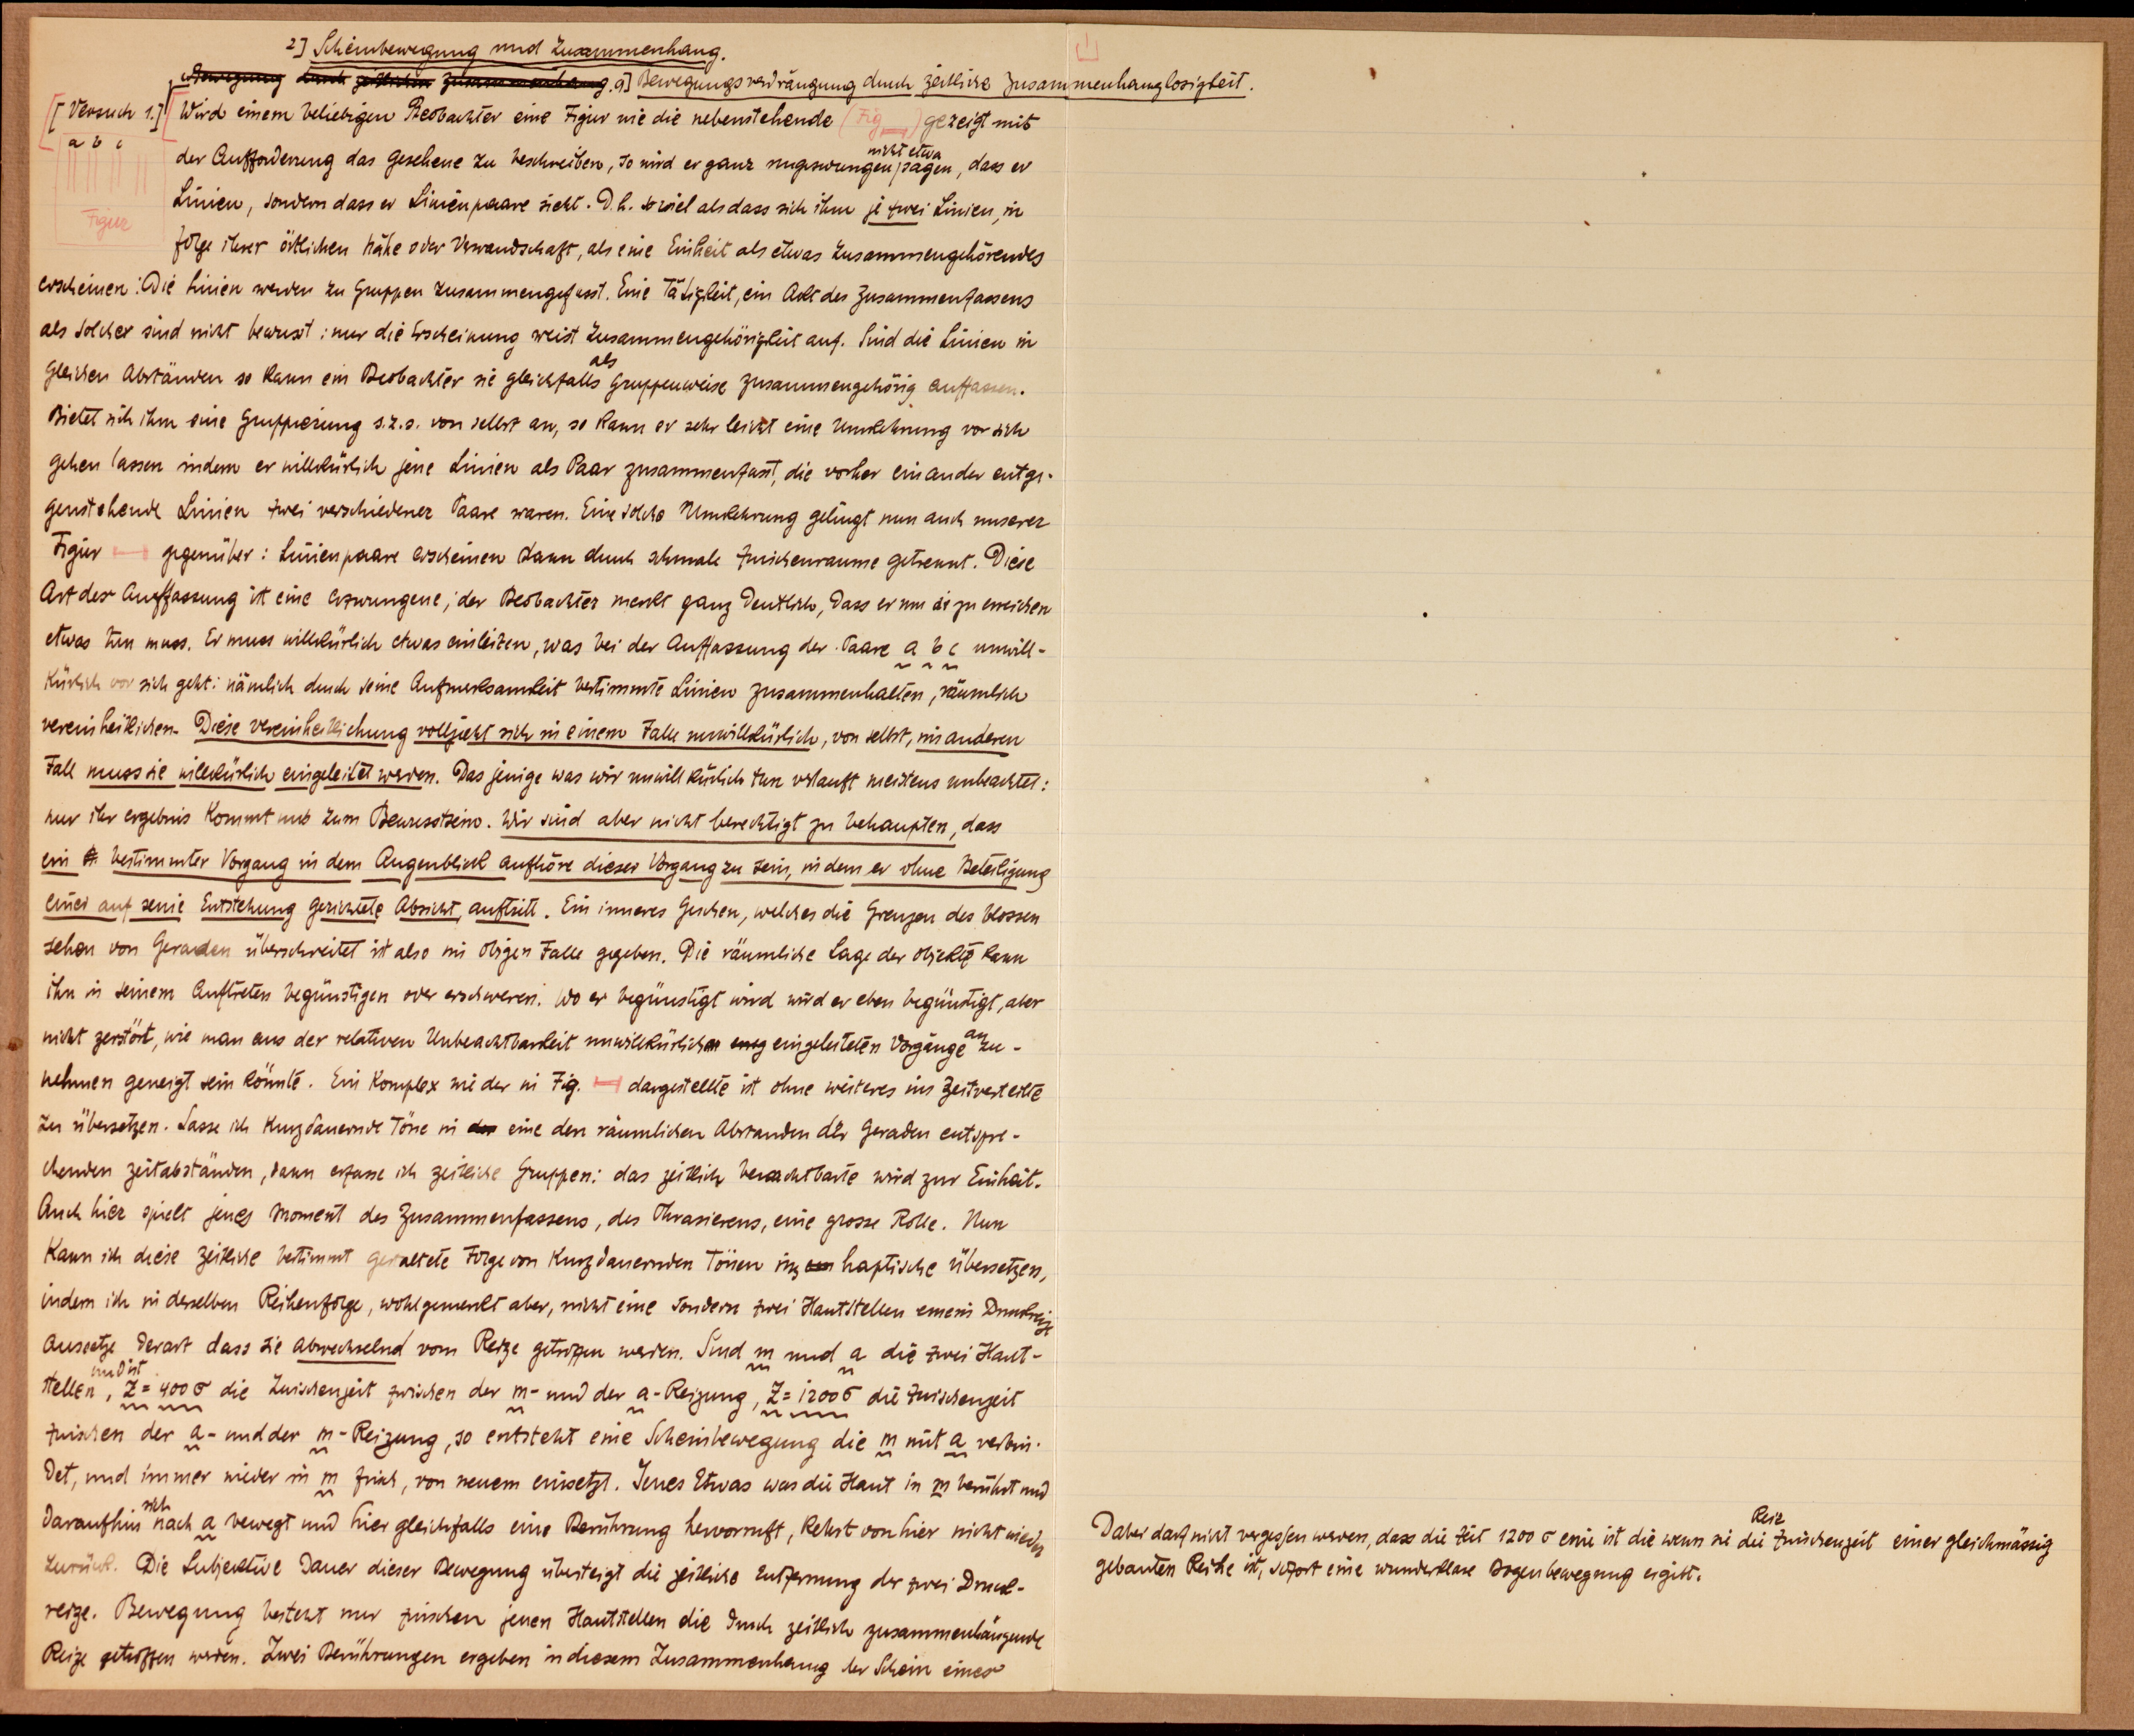 2] Scheinbewegung und Zusammenhang.
Bewegung durch zeitlichen Zusammenhang. a] Bewegungsverdrängung durch zeitliche Zusammenhanglosigkeit.
[Versuch 1.] Wird einem beliebigen Beobachter eine Figur wie die nebenstehende (Fig ) gezeigt mit
a b c
Figur
der Aufforderung das Gesehene zu beschreiben, so wird er ganz ungezwungen nicht etwa sagen, dass er
Linien, sondern dass er Linienpaare sieht. D.h. soviel als dass sich ihm je zwei Linien, in
folge ihrer örtlichen Nähe oder Verwandschaft, als eine Einheit als etwas Zusammengehörendes
erscheinen: Die Linien werden zu Gruppen zusammengefasst. Eine Tätigkeit, ein Akt des Zusammenfassens
als solcher sind nicht bewusst: nur die Erscheinung weist Zusammengehörigkeit auf. Sind die Linien in
gleichen Abständen so kann ein Beobachter sie gleichfalls als gruppenweise zusammengehörig auffassen.
Bietet sich ihm eine Gruppierung s.z.s. von selbst an, so kann er sehr leicht eine Umkehrung vor sich
gehen lassen indem er willkürlich jene Linien als Paar zusammenfasst, die vorher einander entge-
genstehende Linien zwei verschiedener Paare waren. Eine solche Umkehrung gelingt nun auch unserer
Figur gegenüber: Linienpaare erscheinen dann durch schmale Zwischenraume getrennt. Diese
Art der Auffassung ist eine erzwungene; der Beobachter merkt ganz deutlich, dass er um sie zu erreichen
etwas tun muss. Er muss willkürlich etwas einleiten, was bei der Auffassung der Paare a b c unwill-
kürlich vor sich geht: nämlich durch seine Aufmerksamkeit bestimmte Linien zusammenhalten, räumlich
vereinheitlichen. Diese Vereinheitlichung vollzieht sich in einem Falle unwillkürlich, von selbst, im anderen
Fall muss sie willkürlich eingeleitet werden. Das jenige was wir unwillkürlich tun verlauft meistens unbeachtet:
nur ihr ergebnis kommt uns zum Bewusstsein. Wir sind aber nicht berechtigt zu behaupten, dass
ein bestimmter Vorgang in dem Augenblick aufhöre dieser Vorgang zu sein, in dem er ohne Beteiligung
einer auf seine Entstehung gerichtete Absicht, auftritt. Ein inneres Geschen, welches die Grenzen des blossen
sehen von Geraden überschreitet ist also im obigen Falle gegeben. Die räumliche Lage der Objekte kann
ihn in seinem Auftreten begünstigen oder erschweren. Wo er begünstigt wird wird er eben begünstigt, aber
nicht zerstört, wie man aus der relativen Unbeachtbarkeit unwillkürlich eingeleiteten Vorgänge anzu-
nehmen geneigt sein könnte. Ein Komplex wie der in Fig. dargestellte ist ohne weiteres ins Zeitverteilte
zu übersetzen. Lasse ich kurzdauernde Töne in eine den räumlichen Abstanden der Geraden entspre-
chenden Zeitabständen, dann erfasse ich zeitliche Gruppen: das zeitlich benachtbarte wird zur Einheit.
Auch hier spielt jenes Moment des Zusammenfassens, des Phrasierens, eine grosse Rolle. Nun
kann ich diese zeitliche bestimmt geraltete Folge von kurzdauernden Tönen ins haptische übersetzen,
indem ich in derselben Reihenfolge, wohlgemerkt aber, nicht eine sondern zwei Hautstellen einem Druckreize
aussetze derart dass sie abwechselnd vom Reize getroffen werden. Sind m und a die zwei Haut-
stellen, und ist Z = 400 σ die Zwischenzeit zwischen der m- und der a-Reizung, Z = 1200 σ die Zwischenzeit
zwischen der a- und der m-Reizung, so entsteht eine Scheinbewegung die m mit a verbin-
det, und immer wieder in m frisch, von neuem einsetzt. Jenes Etwas was die Haut in m berührt und
daraufhin sich nach a bewegt und hier gleichfalls eine Berührung hervorruft, kehrt von hier nicht wieder
zurück. Die subjektive Dauer dieser Bewegung übersteigt die zeitliche Entfernung der zwei Druck-
reize. Bewegung besteht nur zwischen jenen Hautstellen die durch zeitlich zusammenhängende
Reize getroffen werden. Zwei Berührungen ergeben in diesem Zusammenhang den Schein einer
Daber darf nicht vergessen werden, dass die Zeit 1200 σ eine ist die wenn sie die Reizzwischenzeit einer gleichmässig
gebauten Reihe ist, sofort eine wunderklare Bogenbewegung ergibt.